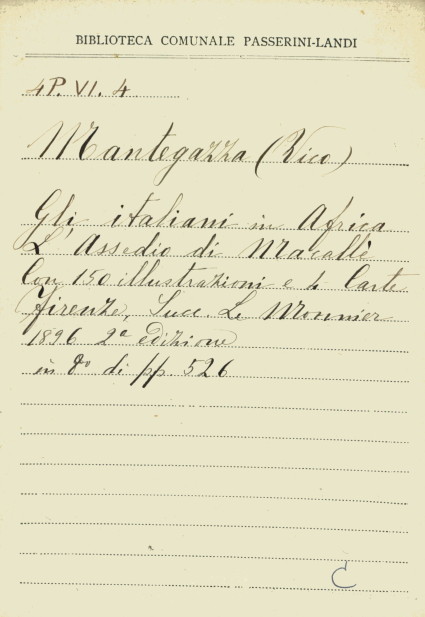 BIBLIOTECA COMUNALE PASSERINI-LANDI
4P. VI. 4
Mantegazza (Vico)
Gli italiani in Africa
L'Assedio di Macallè
Con 150 illustrazioni e 4 Carte
Firenze, Succ. Le Monnier
1896 2a edizione
in 8o di pp. 526
C